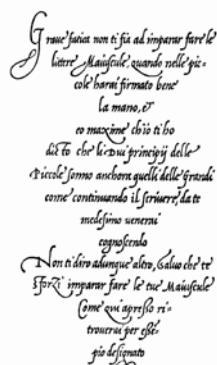 Graue fatica non ti fia ad imparar fare le
littere Maiuscule, quando nelle pic-
cole harai firmato bene
la mano, et
eo maxime ch'io ti ho
ditto che li Dui principij delle
Piccole sonno anchora quelli delle Grandi
come continuando il scriuere, da te
medesimo uenerai
cognoscendo
Non ti diro adunque altro, Saluo che te
sforzi imparar fare le tue Maiuscule
Come qui apresso ri-
trouerai per essẽ-
pio designato